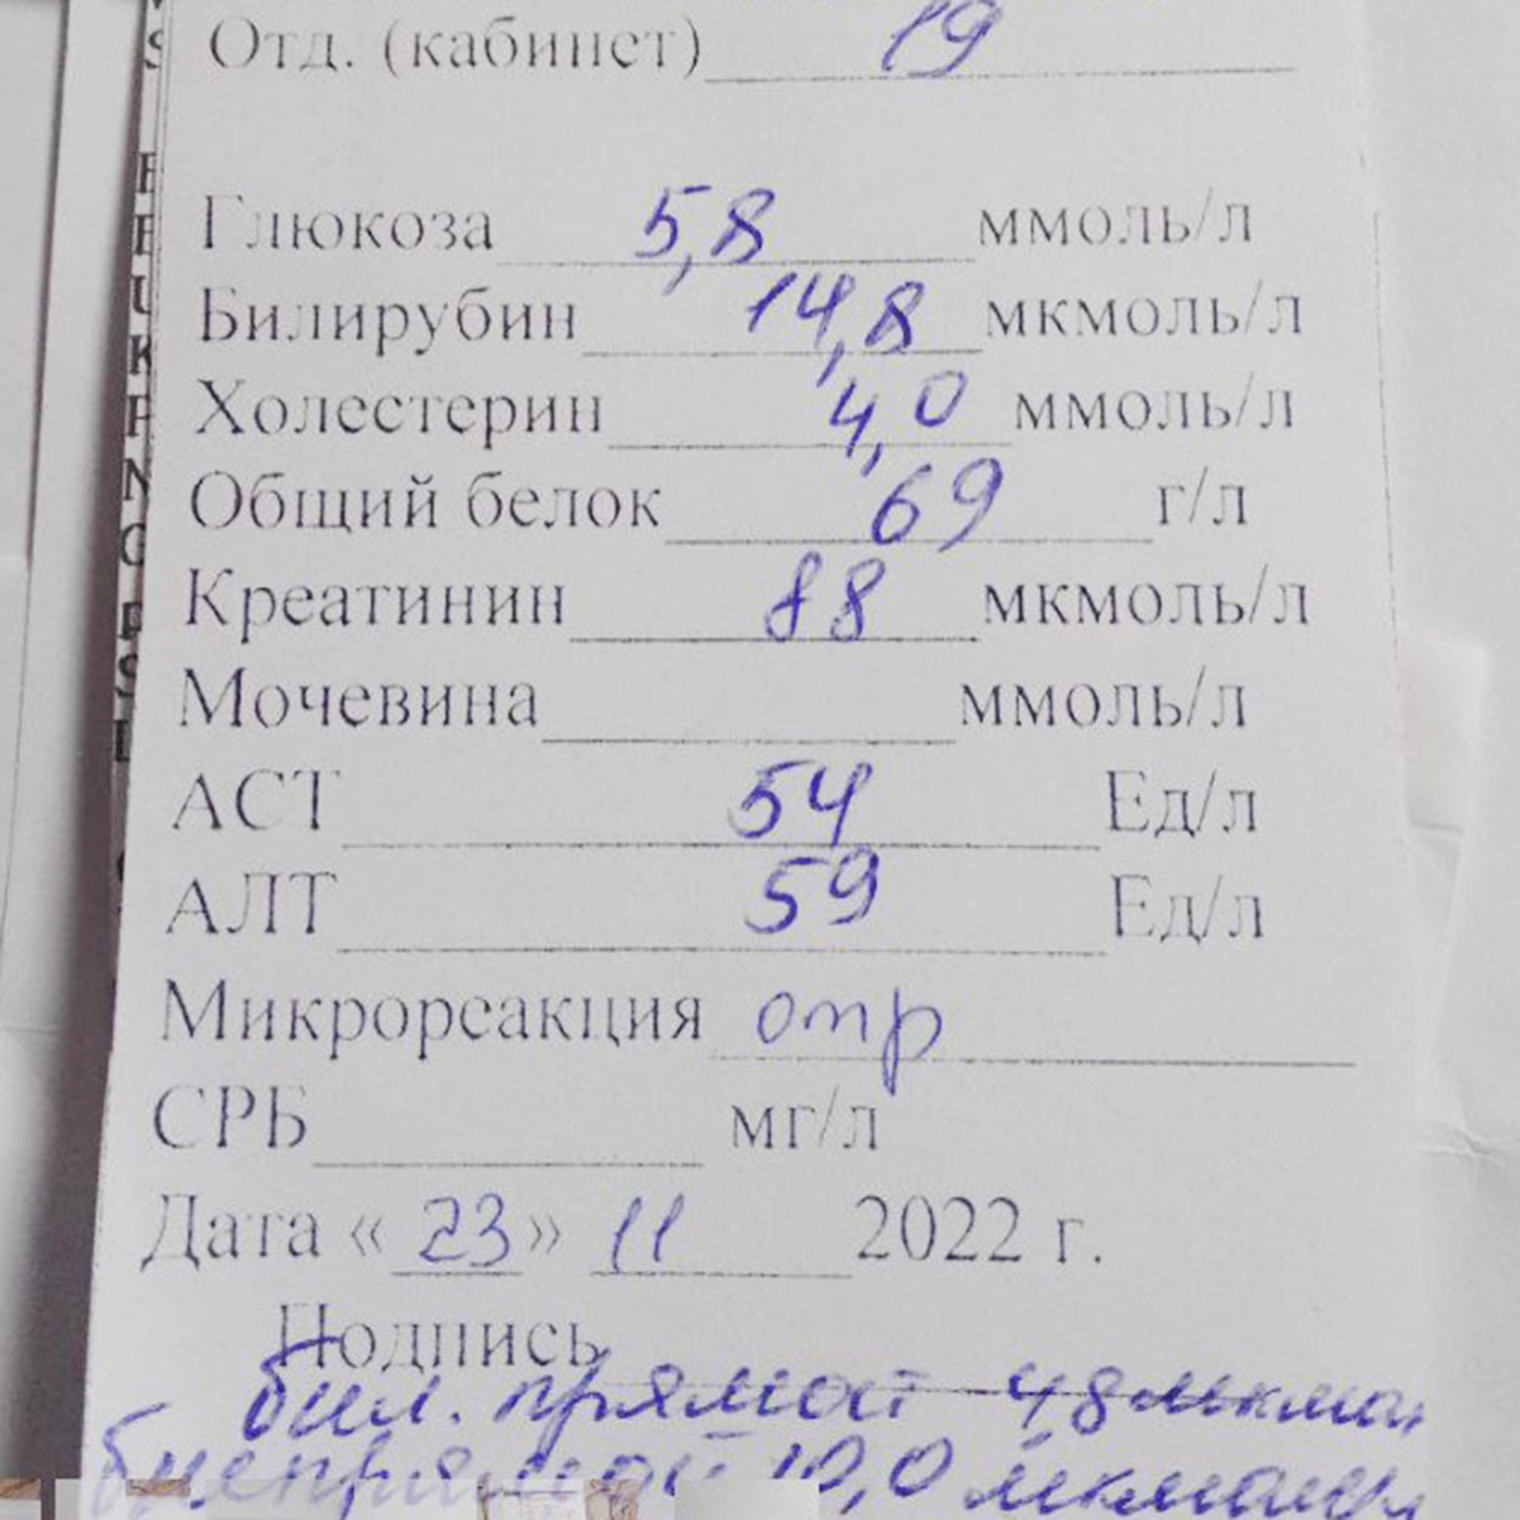 Отд. (кабинет) 19
Глюкоза 5,8 ммоль/л
Билирубин 14,8 мкмоль/л
Холестерин 4,0 ммоль/л
Общий белок 69 г/л
Креатинин 88 мкмоль/л
Мочевина ммоль/л
АСТ 54 Ед/л
АЛТ 59 Ед/л
Микрореакция отр
СРБ мг/л
Дата « 23 » 11 2022 г.
Подпись
бил. прямой 48
непрямой 10,0